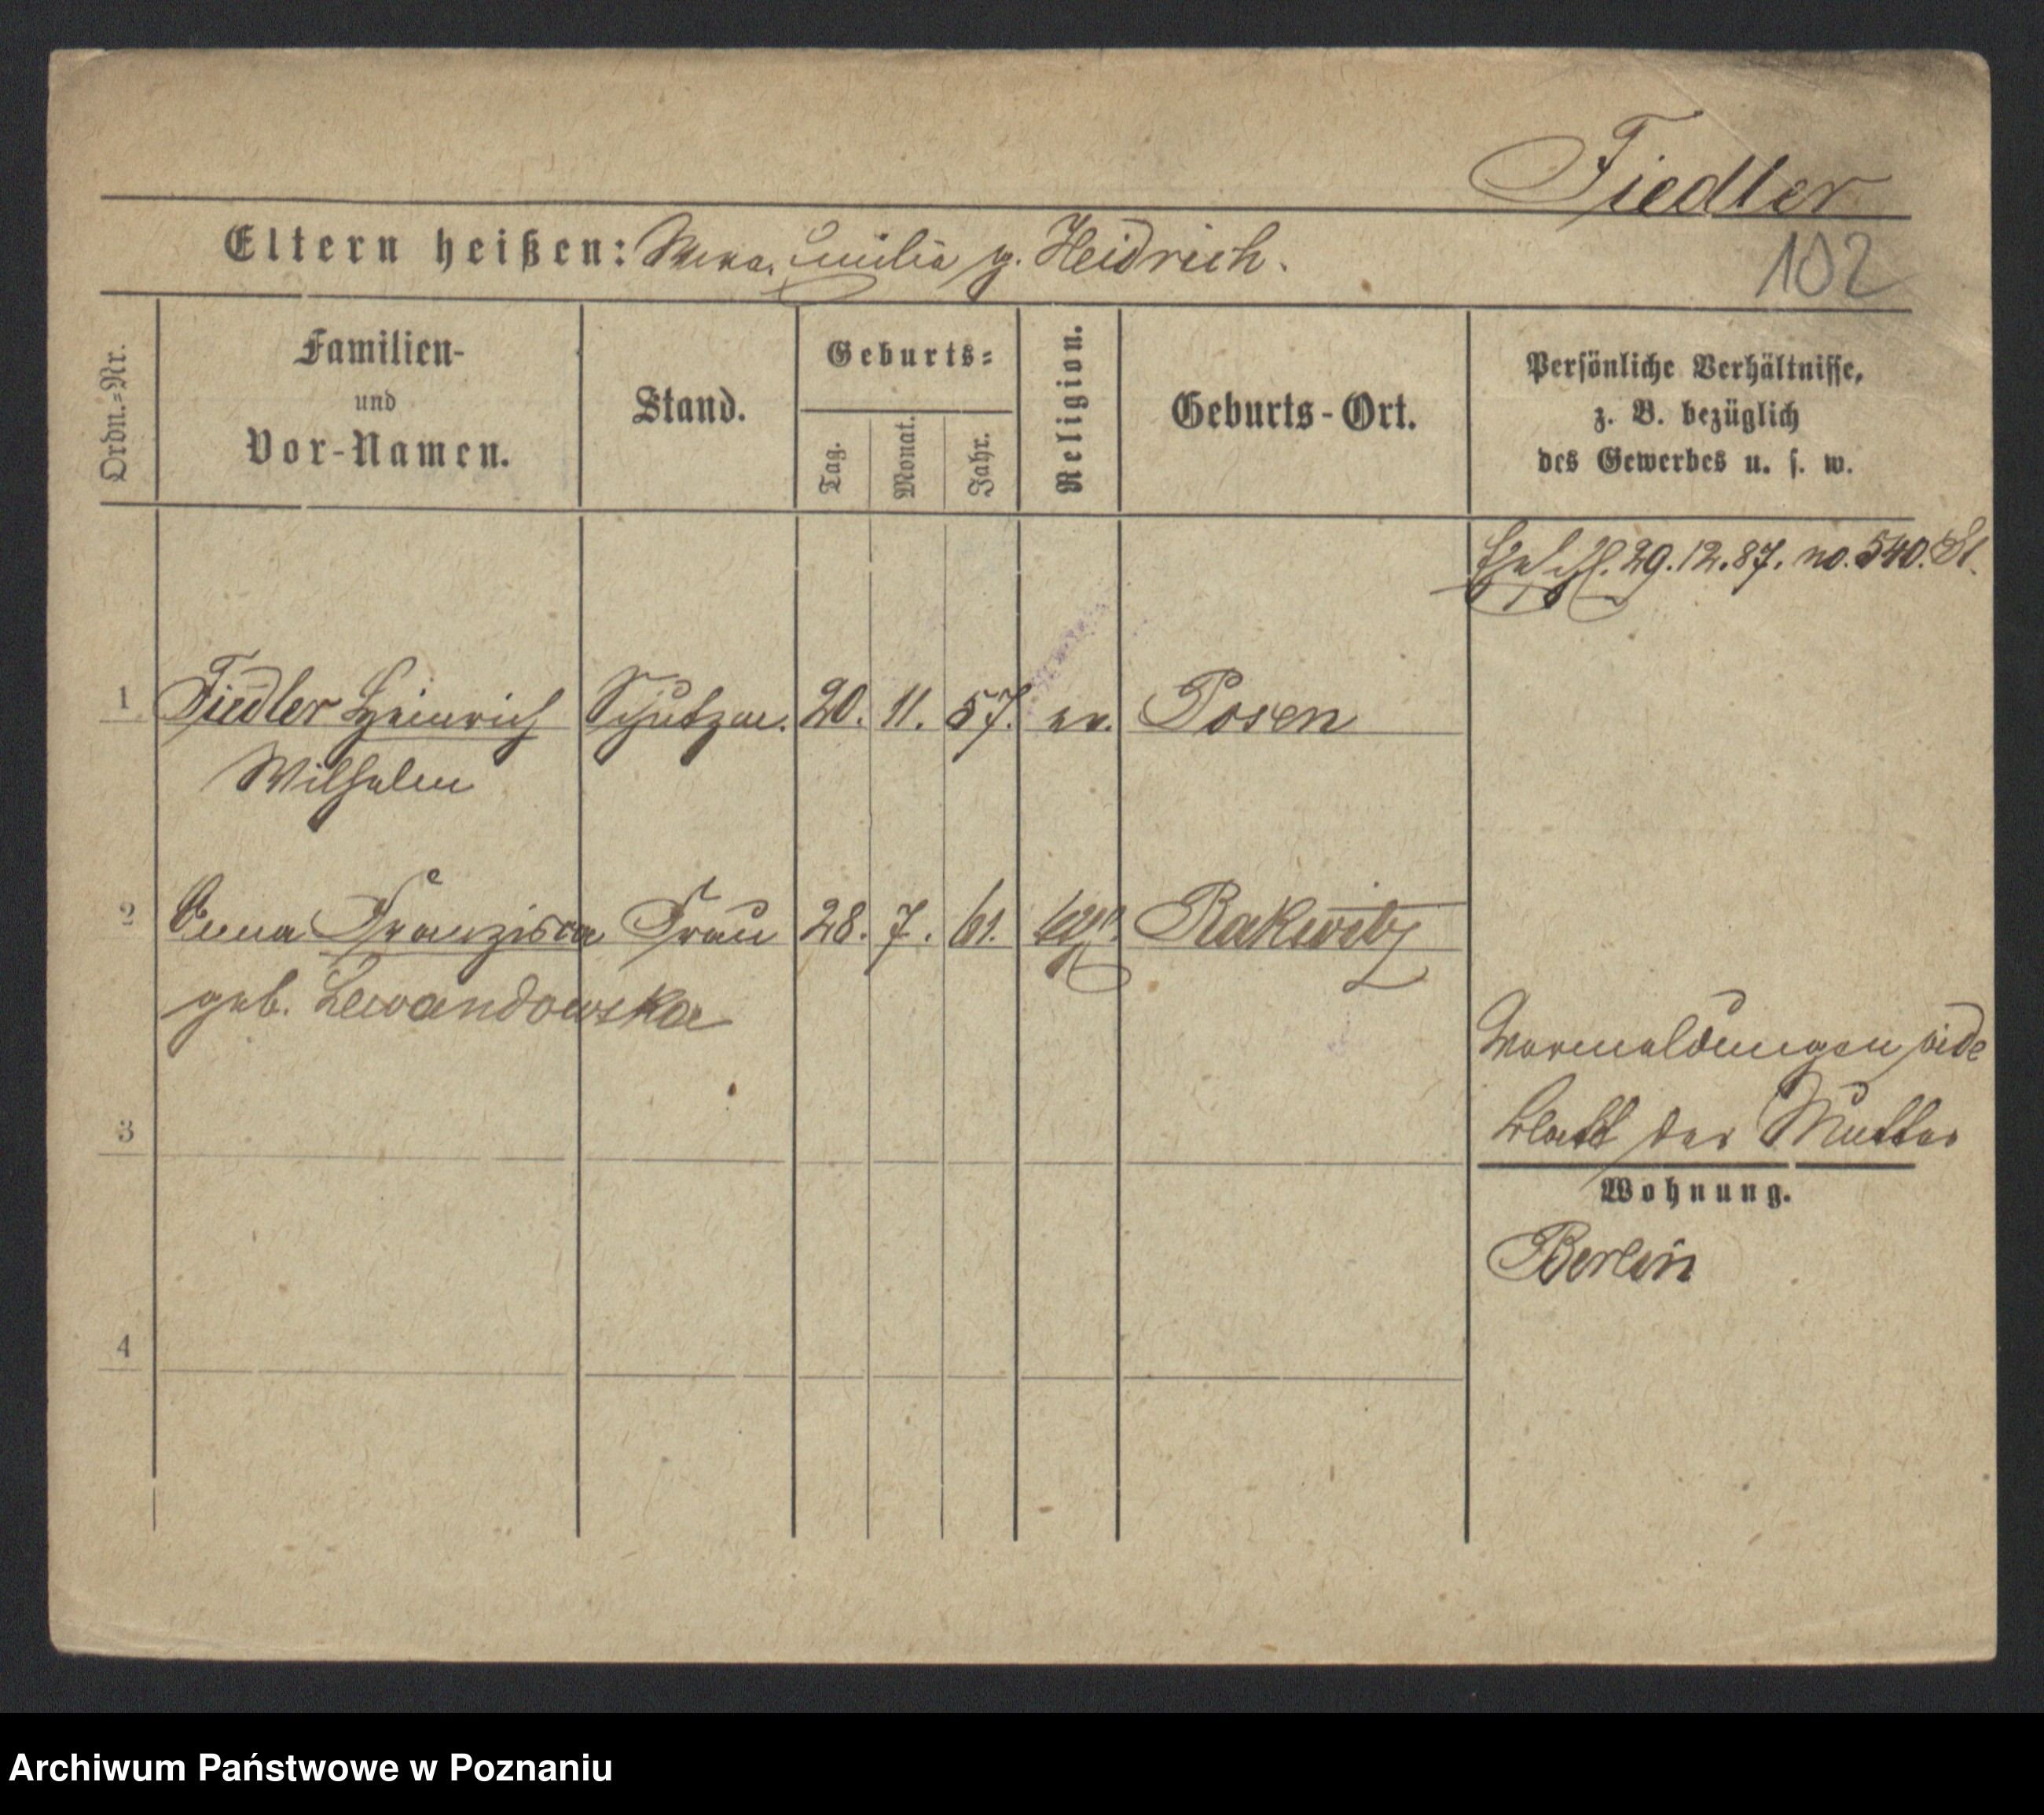 Fiedler
Eltern heißen: Emilia g. Heidrich.
102
Ordn.=Nr.
Familien-
und
Vor-Namen.
Stand.
Geburts=
Tag.
Monat.
Jahr.
Religion.
Geburts-Ort.
Persönliche Verhältnisse,
z. B. bezüglich
des Gewerbes u. s. w.
29.12.87. no. 540. St.
1 Fiedler Heinrich Schutzm. 20. 11. 57. ev. Posen
Wilhelm
2 Anna Franziska Frau 28. 7. 61. Rakwitz
geb. Lewandowska
Vormeldungen vide
3 Blatt der Mutter
Wohnung.
Berlin
4
Archiwum Państwowe w Poznaniu